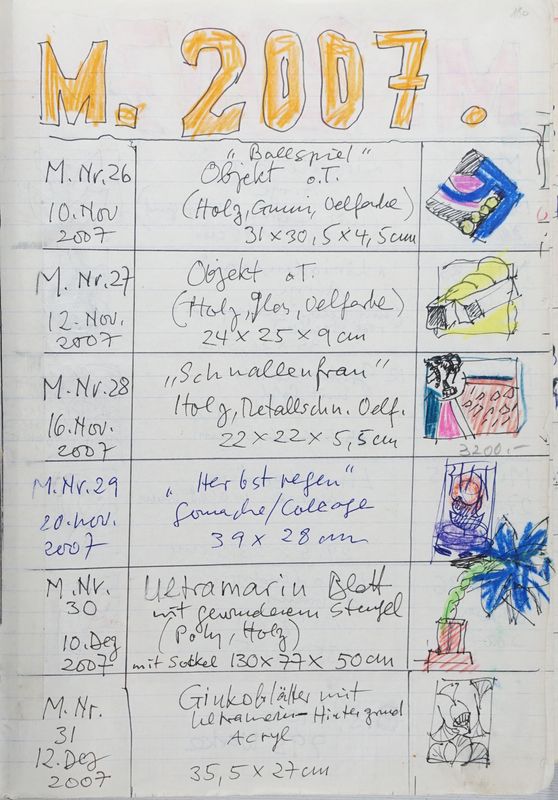 180
M. 2007.
M. Nr. 26
10. Nov
2007
„Ballspiel"
Objekt o.T.
(Holz, Gumi, Oelfarbe)
31 x 30,5 x 4,5 cm
M. Nr. 27
12. Nov.
2007
Objekt o.T.
(Holz, glas, Oelfarbe)
24 x 25 x 9 cm
M. Nr. 28
16. Nov.
2007
„Schnallenfrau"
Holz, Metallschn. Oelf.
22 x 22 x 5,5 cm
3200.—
M. Nr. 29
20. nov.
2007
„Herbstregen"
Gouache/Collage
39 x 28 cm
M. Nr.
30
10. Dez
2007
Ultramarin Blatt
mit gewundenem Stengel
(Poly, Holz)
mit Sockel 130 x 77 x 50 cm
M. Nr.
31
12. Dez
2007
Ginkoblätter mit
ultramarin Hintergrund
Acryl
35,5 x 27 cm